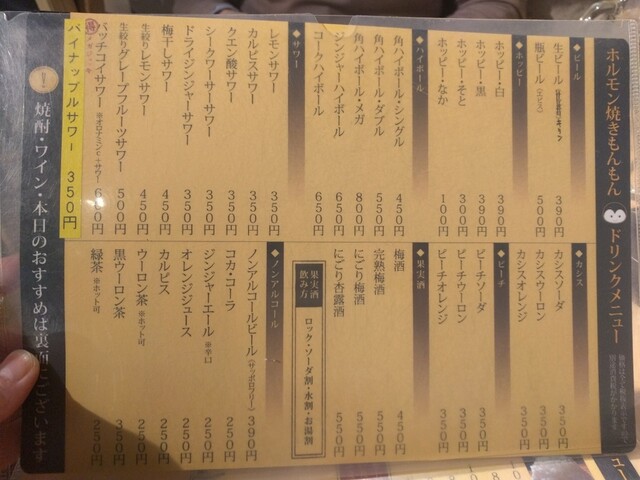 ホルモン焼きもんもん ドリンクメニュー
◆ビール
生ビール 390円
瓶ビール 500円
◆ホッピー
ホッピー・白 390円
ホッピー・黒 390円
ホッピー・そと 300円
ホッピー・なか 100円
◆ハイボール
角ハイボール・シングル 450円
角ハイボール・ダブル 550円
角ハイボール・メガ 800円
ジンジャーハイボール 650円
コークハイボール 650円
◆サワー
レモンサワー 350円
カルピスサワー 350円
クエン酸サワー 350円
シークワーサーサワー 350円
ドライジンジャーサワー 350円
梅干しサワー 450円
生絞りレモンサワー 450円
生絞りグレープフルーツサワー 500円
バッチコイサワー ※オロナミンC+サワー
パイナップルサワー 350円
◆カシス
カシスソーダ 350円
カシスウーロン 350円
カシスオレンジ 350円
◆ピーチ
ピーチソーダ 350円
ピーチウーロン 350円
ピーチオレンジ 350円
◆果実酒
梅酒 450円
完熟梅酒 550円
にごり梅酒 550円
にごり杏露酒 550円
果実酒 飲み方
ロック・ソーダ割・水割・お湯割
◆ノンアルコール
ノンアルコールビール(サッポロフリー) 390円
コカ・コーラ 250円
ジンジャーエール ※辛口 250円
オレンジジュース 250円
カルピス 250円
ウーロン茶 ※ホット可 250円
黒ウーロン茶 350円
緑茶 ※ホット可 250円
焼酎・ワイン・本日のおすすめは裏面にございます